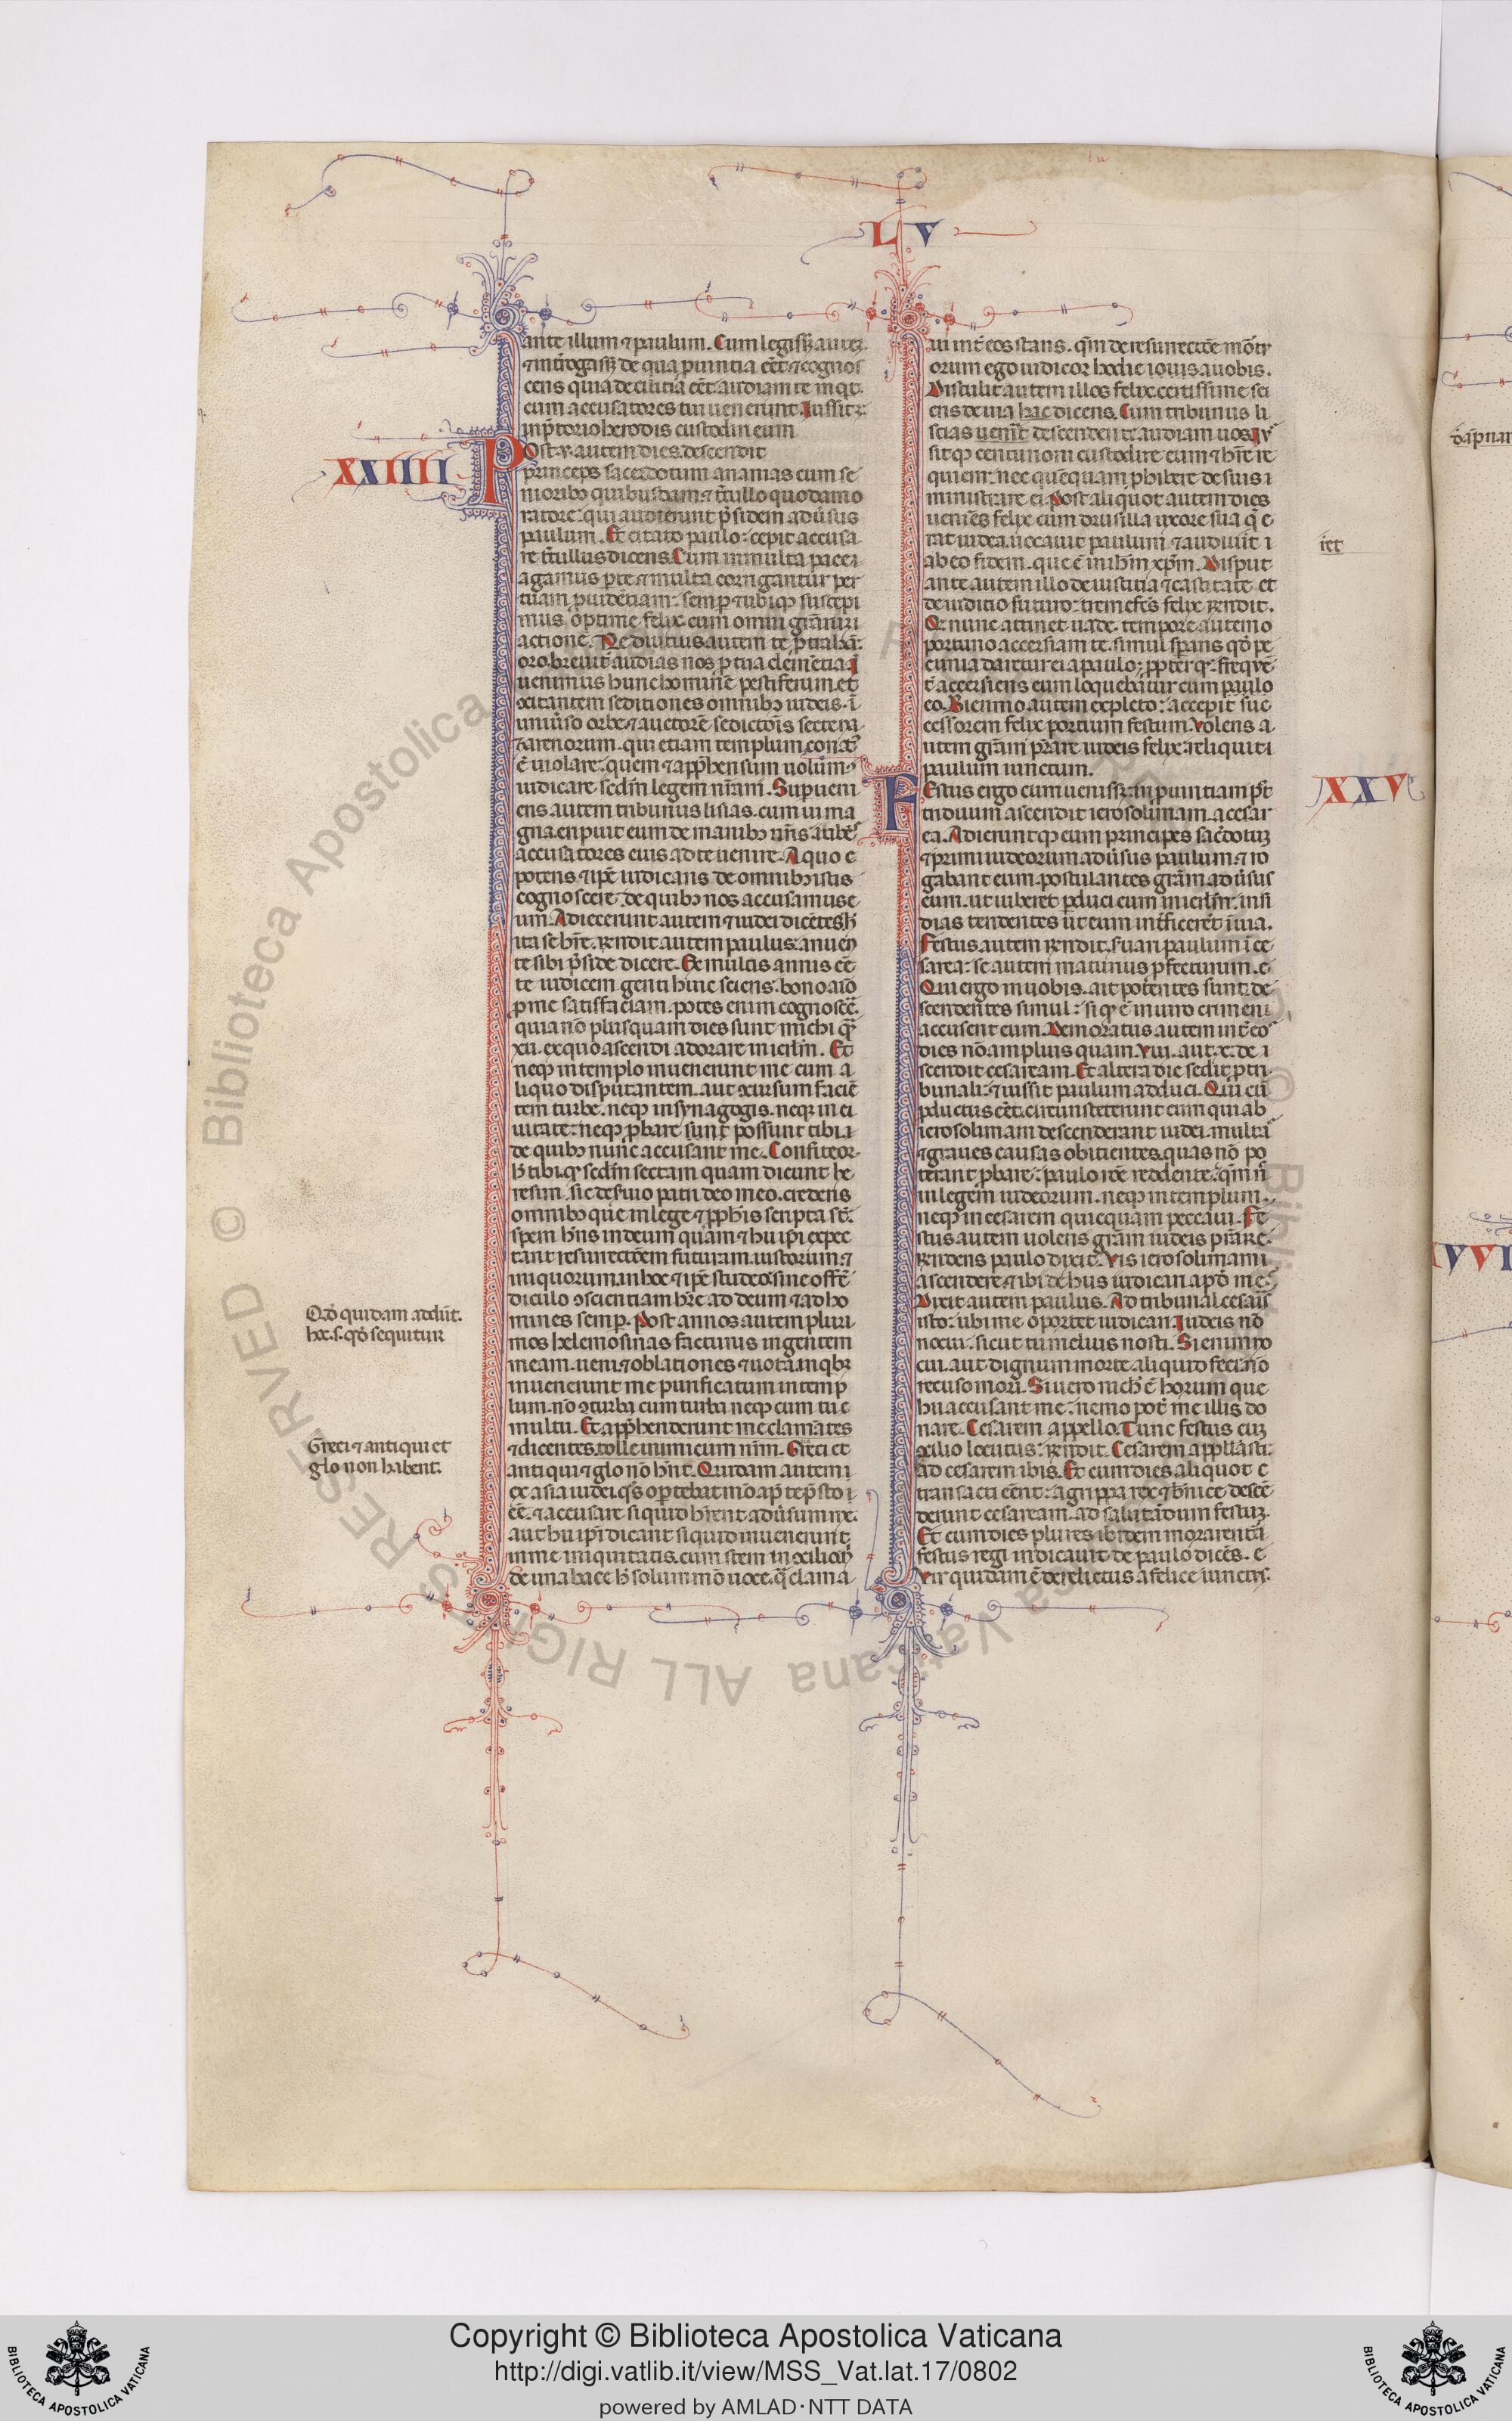 L V
ante illum ⁊ paulum. Cum legiss& autē.
⁊ int̄rogass& de qua ꝓuintia eēt. ⁊ cognos
cens quia de cilitia eēt. audiam te inqt.
cum accusatores tui uenerint. Iussit
in p̄torio herodis custodiri eum
XXIIII
Post .v. autem dies. descendit
princeps sacerdotum ananias cum se
nioribꝫ quibusdam. ⁊ t̄tullo quodam o
ratore. qui audierunt p̄sidem aduʼsus
paulum. Et citato paulo: cepit accusa
re t̄tullus dicens. Cum in multa pace
agamus ꝑ te. ⁊ multa corrigantur per
tuam ꝓuidētiam: semꝑ ⁊ ubiqꝫ suscepi
mus optime felix. cum omni grāꝝ
actione. Ne diutius autem te ꝓtrahā:
oro breuit̄ audias nos ꝓ tua clemētia. I
uenimus hunc hominē pestiferum. et
ꝯcitantem seditiones omnibꝫ iudeis. ī
uniuʼso orbe. ⁊ auctorē seditiōis secte na
ꝫarenorum. qui etiam templum conatꝰ
ē uiolare: quem ⁊ app̄hensum uoluimꝰ
iudicare scd̄m legem nr̄am. Superueni
ens autem tribunus lisias. cum ui ma
gna eripuit eum de manibꝫ nr̄is iubēs
accusatores eius ad te uenire. A quo
poteris ⁊ ip̄e iudicans de omnibꝫ istis
cognoscere: de quibꝫ nos accusamus e
um. Adiecerunt autem ⁊ iudei dicētes h̄
ita se hr̄e. Rn̄dit autem paulus. annuen
te sibi p̄side dicere. Ex multis annis eē
te iudicem genti huic sciens. bono aīo
ꝓ me satisfaciam. potes enim cognoscē
quia nō plusquam dies sunt michi qm̄
xii. ex quo ascendi adorare in ierlm̄. Et
neqꝫ in templo inuenerunt me cum a
liquo disputantem. aut ꝯcursum faciē
tem turbe. neqꝫ in synagogis. neqꝫ in ci
uitate: neqꝫ ꝓbare sunt possunt tibi
de quibꝫ nunc accusant me. Confiteor
h̄ tibi qꝫ scd̄m sectam quam dicunt he
resim. sic deseruio patri deo meo. credens
omnibꝫ que in lege ⁊ ꝓph̄is scripta st̄:
spem hn̄s in deum quam ⁊ hii ip̄i expec
tant resurrectōem futuram. iustorum ⁊
iniquorum. in hoc ⁊ ip̄e studeo. sine offē
diculo ꝯscientiam hr̄e ad deum ⁊ ad ho
Qd̓ quidam addūt.
hoc .s. qd̓ sequitur
mines semꝑ. Post annos autem pluri
mos helemosinas facturus in gentem
meam. ueni. ⁊ oblationes ⁊ uota. in qbꝫ
inuenerunt me purificatum in temp
lum. nō ꝯ turba cum turba neqꝫ cum tu
multu. Et app̄henderunt me clamātes
Greci ⁊ antiqui et
glo non habent.
⁊ dicentes. tolle inimicum nr̄m. Greci et
antiqui ⁊ glo nō hn̄t. Quidam autem
ex asia iudei. qͦs oportebat mō apd̓ te p̄sto
eē. ⁊ accusare si quid hr̄ent aduʼsum me.
aut hii ip̄i dicant si quid inuenerunt
in me iniquitatis. cum stem in ꝯcilio. ni
de una hac e h̄ solum mō uoce. qͣ clama
ui int̄ eos stans. qm̄ de resurrectōe mōtr
orum ego iudicor hodie iouis a uobis.
Distulit autem illos felix. certissime sci
ens de uia hac dicens. Cum tribunus li
scias uenīt descenderit. audiam uos. Iu
sit qꝫ centurioni custodire eum. ⁊ hr̄e re
quiem: nec quēquam ꝓhibere de suis
ministrare ei. Post aliquot autem dies
ueniēs felix cum drusilla uxore sua qͤ e
iet
rat iudea. uocauit paulum ⁊ audiuit
ab eo fidem. que ē in ihm̄ xp̄m. Disput
ante autem illo de iustitia ⁊ castitate. et
de iuditio futuro: tremefc̄s felix rn̄dit.
Qd̓ nunc attinet. uade. tempore autem o
portuno accersiam te. simul sperans qd̓ pe
cunia daretur ei a paulo. ꝓpter qd̓. freqʼn
t̄ accersiens eum loquebatur cum paulo
eo. Biennio autem expleto: accepit suc
cessorem felix portium festum. Volens a
utem grām p̄stare iudeis felix: reliquit
paulum iunctum.
XXV
Festus ergo cum ueniss& in ꝓuintiam pꝰt
triduum ascendit ierosolimam. a cesar
ea. Adierunt qꝫ eum principes sac̄dotum
⁊ primi iudeorum aduʼsus paulum ⁊ ro
gabant eum. postulantes grām aduʼsus
eum. ut iuberet ꝑduci eum in ierlm̄: insi
dias tendentes ut eum int̄ficerēt in uia.
Festus autem rn̄dit. suari paulum ī ce
sarea: se autem maturius ꝓfecturum.
Qui ergo in uobis. ait potentes sunt: de
scendentes simul: si qd̓ ē in uiro crimen
accusent eum. Demoratus autem int̄ eos
dies nō amplius quam .viii. aut .x. de
scendit cesaream. Et altera die sedit ꝓ tri
bunali: ⁊ iussit paulum adduci. Qui cū
ꝑductus eēt. circumsteterunt eum qui ab
ierosolimam descenderant iudei. multas
⁊ graues causas obicientes. quas nō po
terant ꝓbare: paulo rōe reddente. qm̄ n̄
in legem iudeorum. neqꝫ in templum
neqꝫ in cesarem quicquam peccaui. Fe
stus autem uolens grām iudeis p̄stare.
Rn̄dens paulo dixit. Vis ierosolimam
ascendere ⁊ ibi de hiis iudicari apd̓ me.
Dixit autem paulus. Ad tribunal cesaris
sto: ubi me oportet iudicari. Iudeis nō
nocui. sicut tu melius nosti. Si enim no
cui. aut dignum morte aliquid feci. nō
recuso mori. Si uero nich̄ ē horum que
hii accusant me: nemo pot̄ me illis do
nare. Cesarem appello. Tunc festus cum
ꝯcilio locutus: rn̄dit. Cesarem appllasti:
ad cesarem ibis. Et cum dies aliquot
transacti eēnt: agrippa rex ⁊ bernice. descē
derunt cesaream. ad salutādum festum.
Et cum dies plures ibidem morarentur
festus regi indicauit de paulo dicēs.
Vir quidam ē derelictus a felice iunctus.
XXVI
Copyright © Biblioteca Apostolica Vaticana
http://digi.vatlib.it/view/MSS_Vat.lat.17/0802
powered by AMLAD · NTT DATA
BIBLIOTECA APOSTOLICA VATICANA
BIBLIOTECA APOSTOLICA VATICANA
© Biblioteca Apostolica Vaticana ALL RIGHTS RESERVED